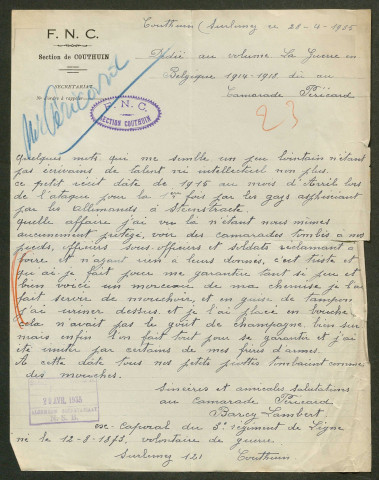 F. N. C.
Section de COUTHUIN
SECRÉTARIAT
Couthuin (Surlemez le 21-4-1935
Dédié au volume La Guerre en
Belgique 1914-1918 dû au
Camarade Péricard
Mr Péricard
F. N. C.
SECTION COUTHUIN
23
Quelques mots qui me semble un peu lointain n'étant
pas écrivains de talent ni intellectuel non plus.
ce petit récit date de 1915 au mois d'Avril lors
de l'attaque pour la 1ère fois par les gaz asphyxiant
par les allemands à Steenstraete.
quelle affaire j'ai vu là n'étant nous mêmes
aucunement protégé, voir des camarades tombés à nos
pieds, officiers sous-officiers et soldats réclamant à
boire et n'ayant rien à leurs donner, c'est triste et
qu'ai je fait pour me garantir tant si peu et
bien voici un morceau de ma chemise je l'ai
fait servir de mouchoir, et en guise de tampon
j'ai uriner dessus et je l'ai placé en bouche
cela n'avait pas le goût de champagne bien sur
mais enfin l'on fait tout pour se garantir et j'ai
été imiter par certains de mes frères d'armes.
A cette date tous nos petits piottes tombaient comme
des mouches.
Sincères et amicales salutations
au Camarade Péricard
Barcy Lambert
ex-Caporal du 3e régiment de Ligne
né le 12-8-1873, volontaire de guerre
Surlemez 121 Couthuin